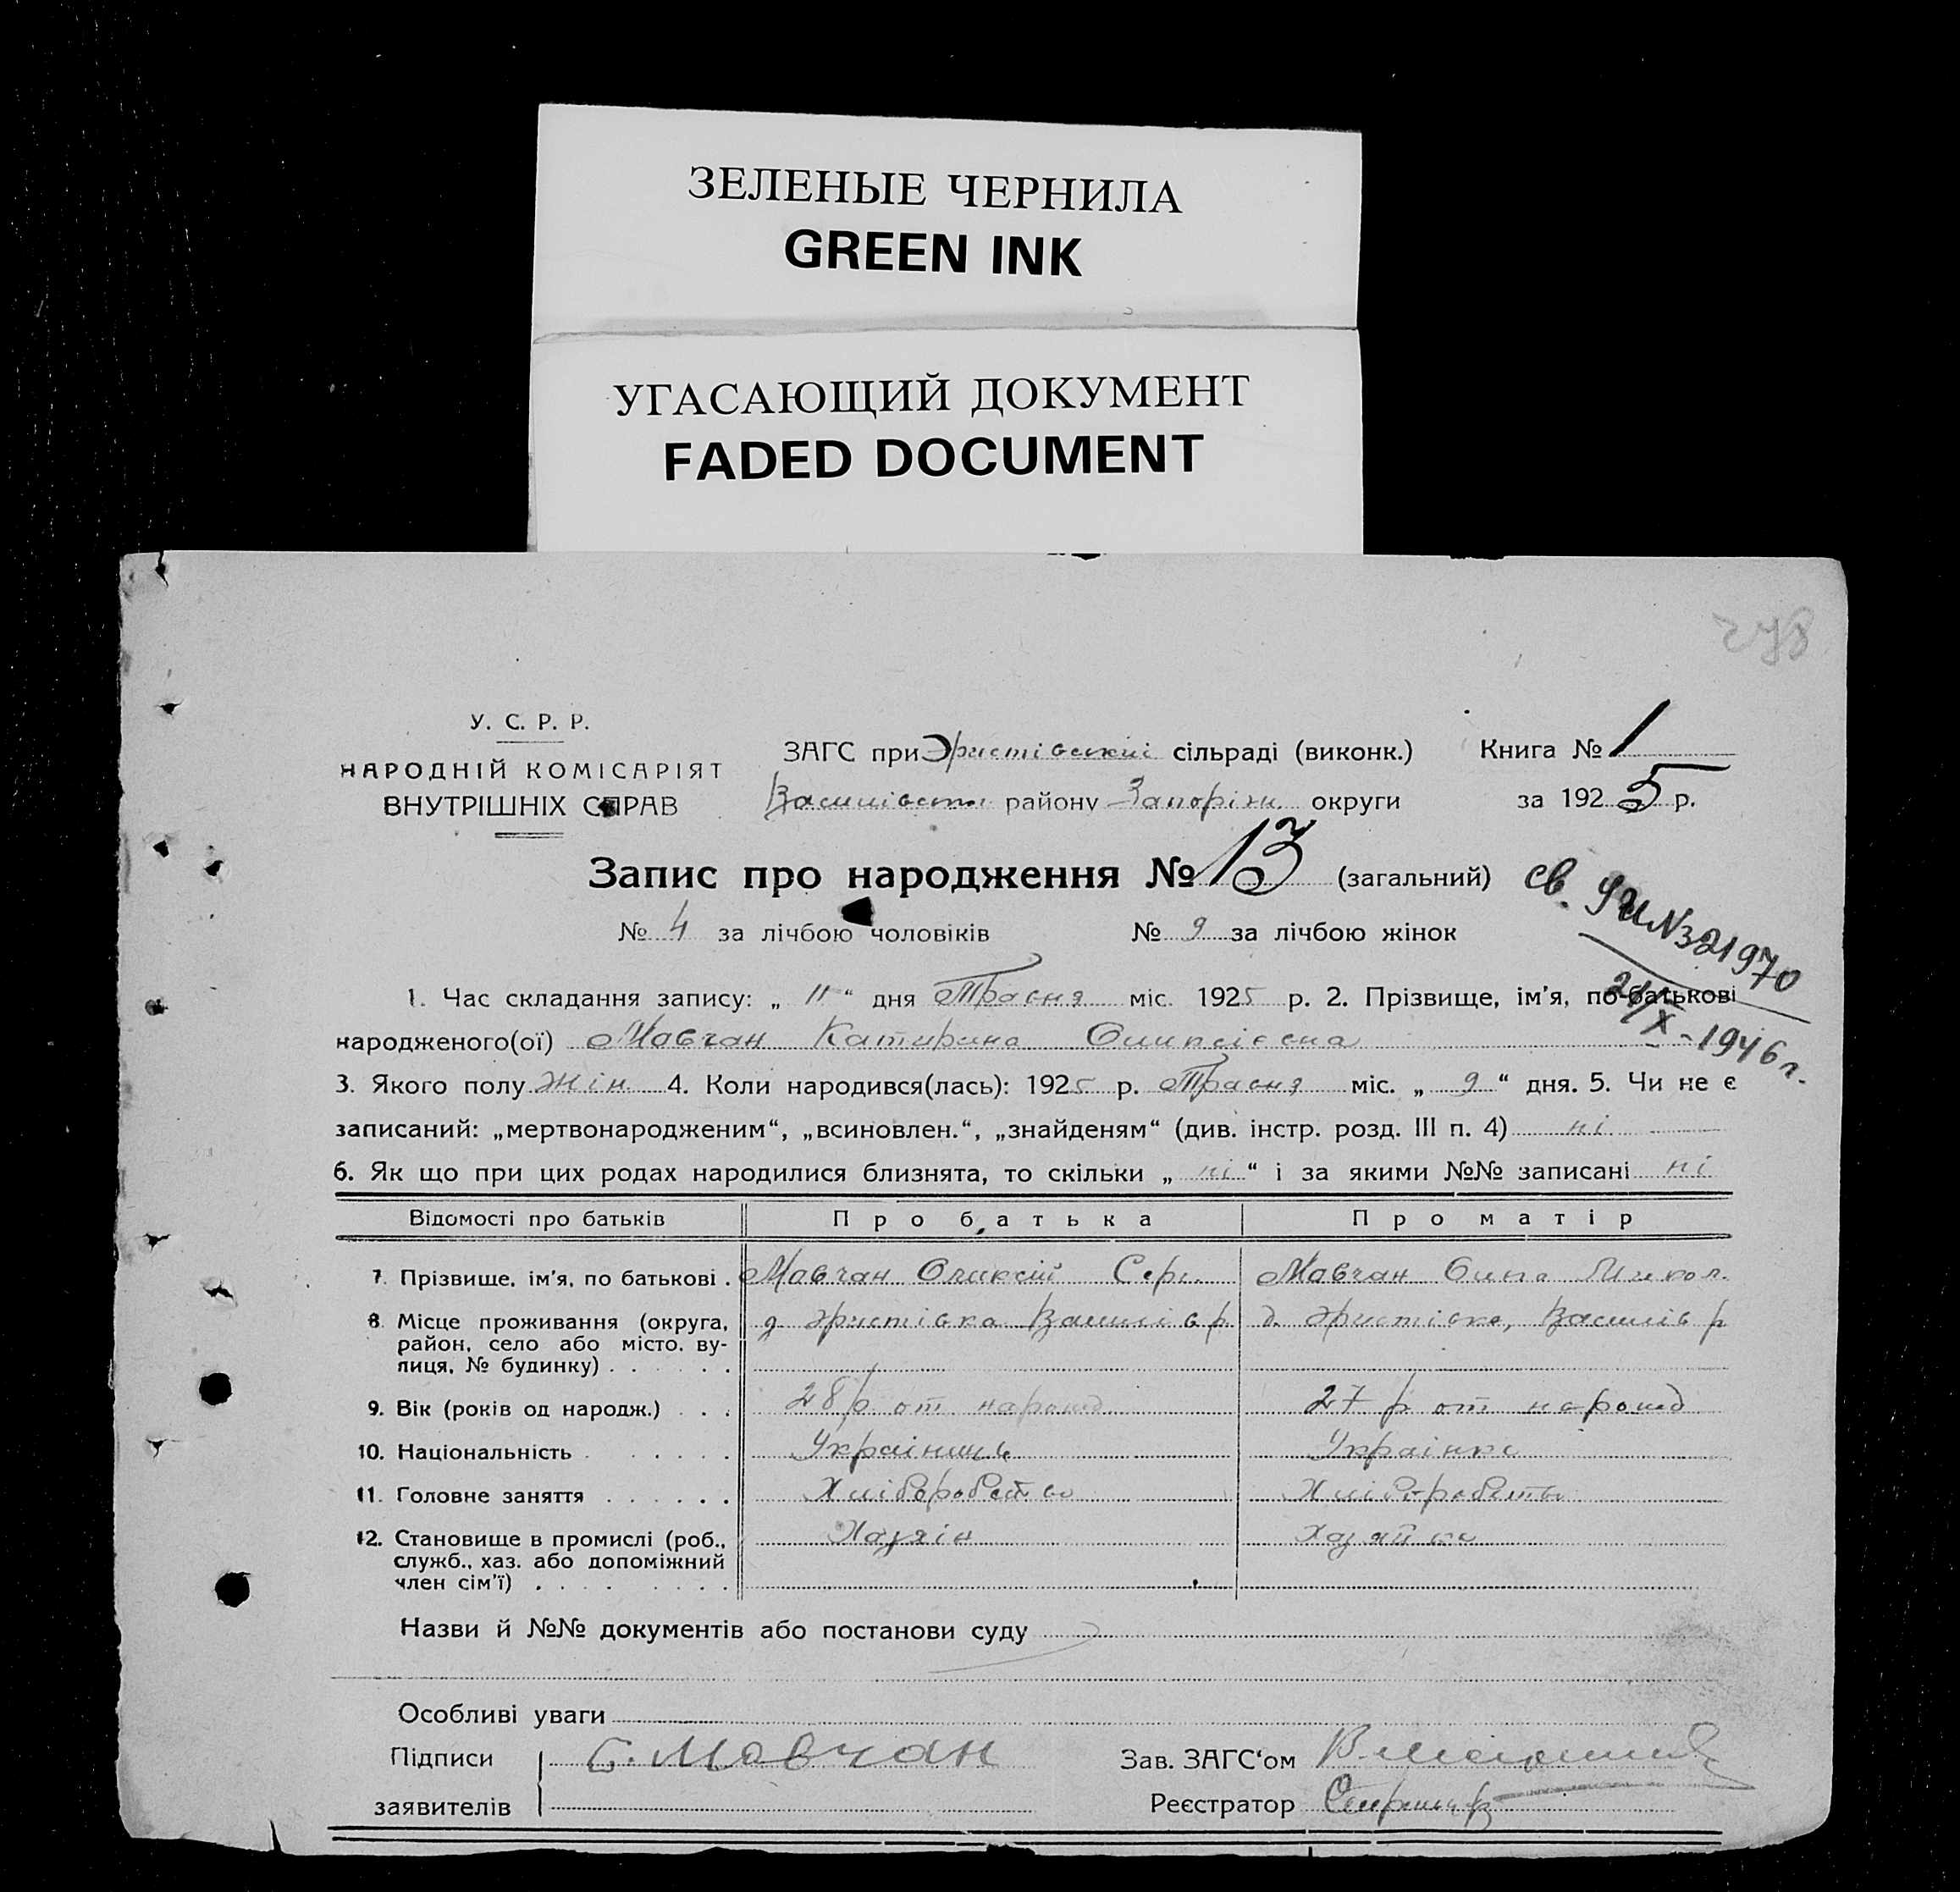 ЗЕЛЕНЫЕ ЧЕРНИЛА
GREEN INK
УГАСАЮЩИЙ ДОКУМЕНТ
FADED DOCUMENT
278
У. С. Р. Р.
НАРОДНІЙ КОМІСАРІЯТ
ВНУТРІШНІХ СПРАВ
ЗАГС при Эристівській сільраді (виконк.) Книга № 1
Василівськ району Запоріж. округи за 1925 р.
Запис про народження № 13 (загальний)
св. УИ № 321970
24/X-1946 г.
№ 4 за лічбою чоловіків № 9 за лічбою жінок
1. Час складання запису: „ 11 “ дня Травня міс. 1925 р. 2. Прізвище, ім’я, по-батькові
народженого(ої) Мовчан Катирина Оликсієвна
3. Якого полу жін 4. Коли народився(лась): 1925 р. Травня міс. „ 9 “ дня. 5. Чи не є
записаний: „мертвонародженим“, „всиновлен.“, „знайденям“ (див. інстр. розд. III п. 4) ні
6. Як що при цих родах народилися близнята, то скільки „ ні “ і за якими №№ записані ні
Відомості про батьків Про батька Про матір
7. Прізвище, ім’я, по батькові . Мовчан Оликсій Серг. Мовчан Микол.
8. Місце проживання (округа, д. Эристівка Василів р д. Эристівка, Василів р
район, село або місто, ву-
лиця, № будинку) . . . . .
9. Вік (років од народж.) . . . 28 р от нарожд 27 р от нарожд
10. Національність . . . . . . Українець Українка
11. Головне заняття . . . . . . Хліборобство Хліборобство
12. Становище в промислі (роб., Хазяін Хазяйка
служб., хаз. або допоміжний
член сім’ї) . . . . . . . .
Назви й №№ документів або постанови суду
Особливі уваги
Підписи Мовчан Зав. ЗАГС‘ом
заявителів Реєстратор